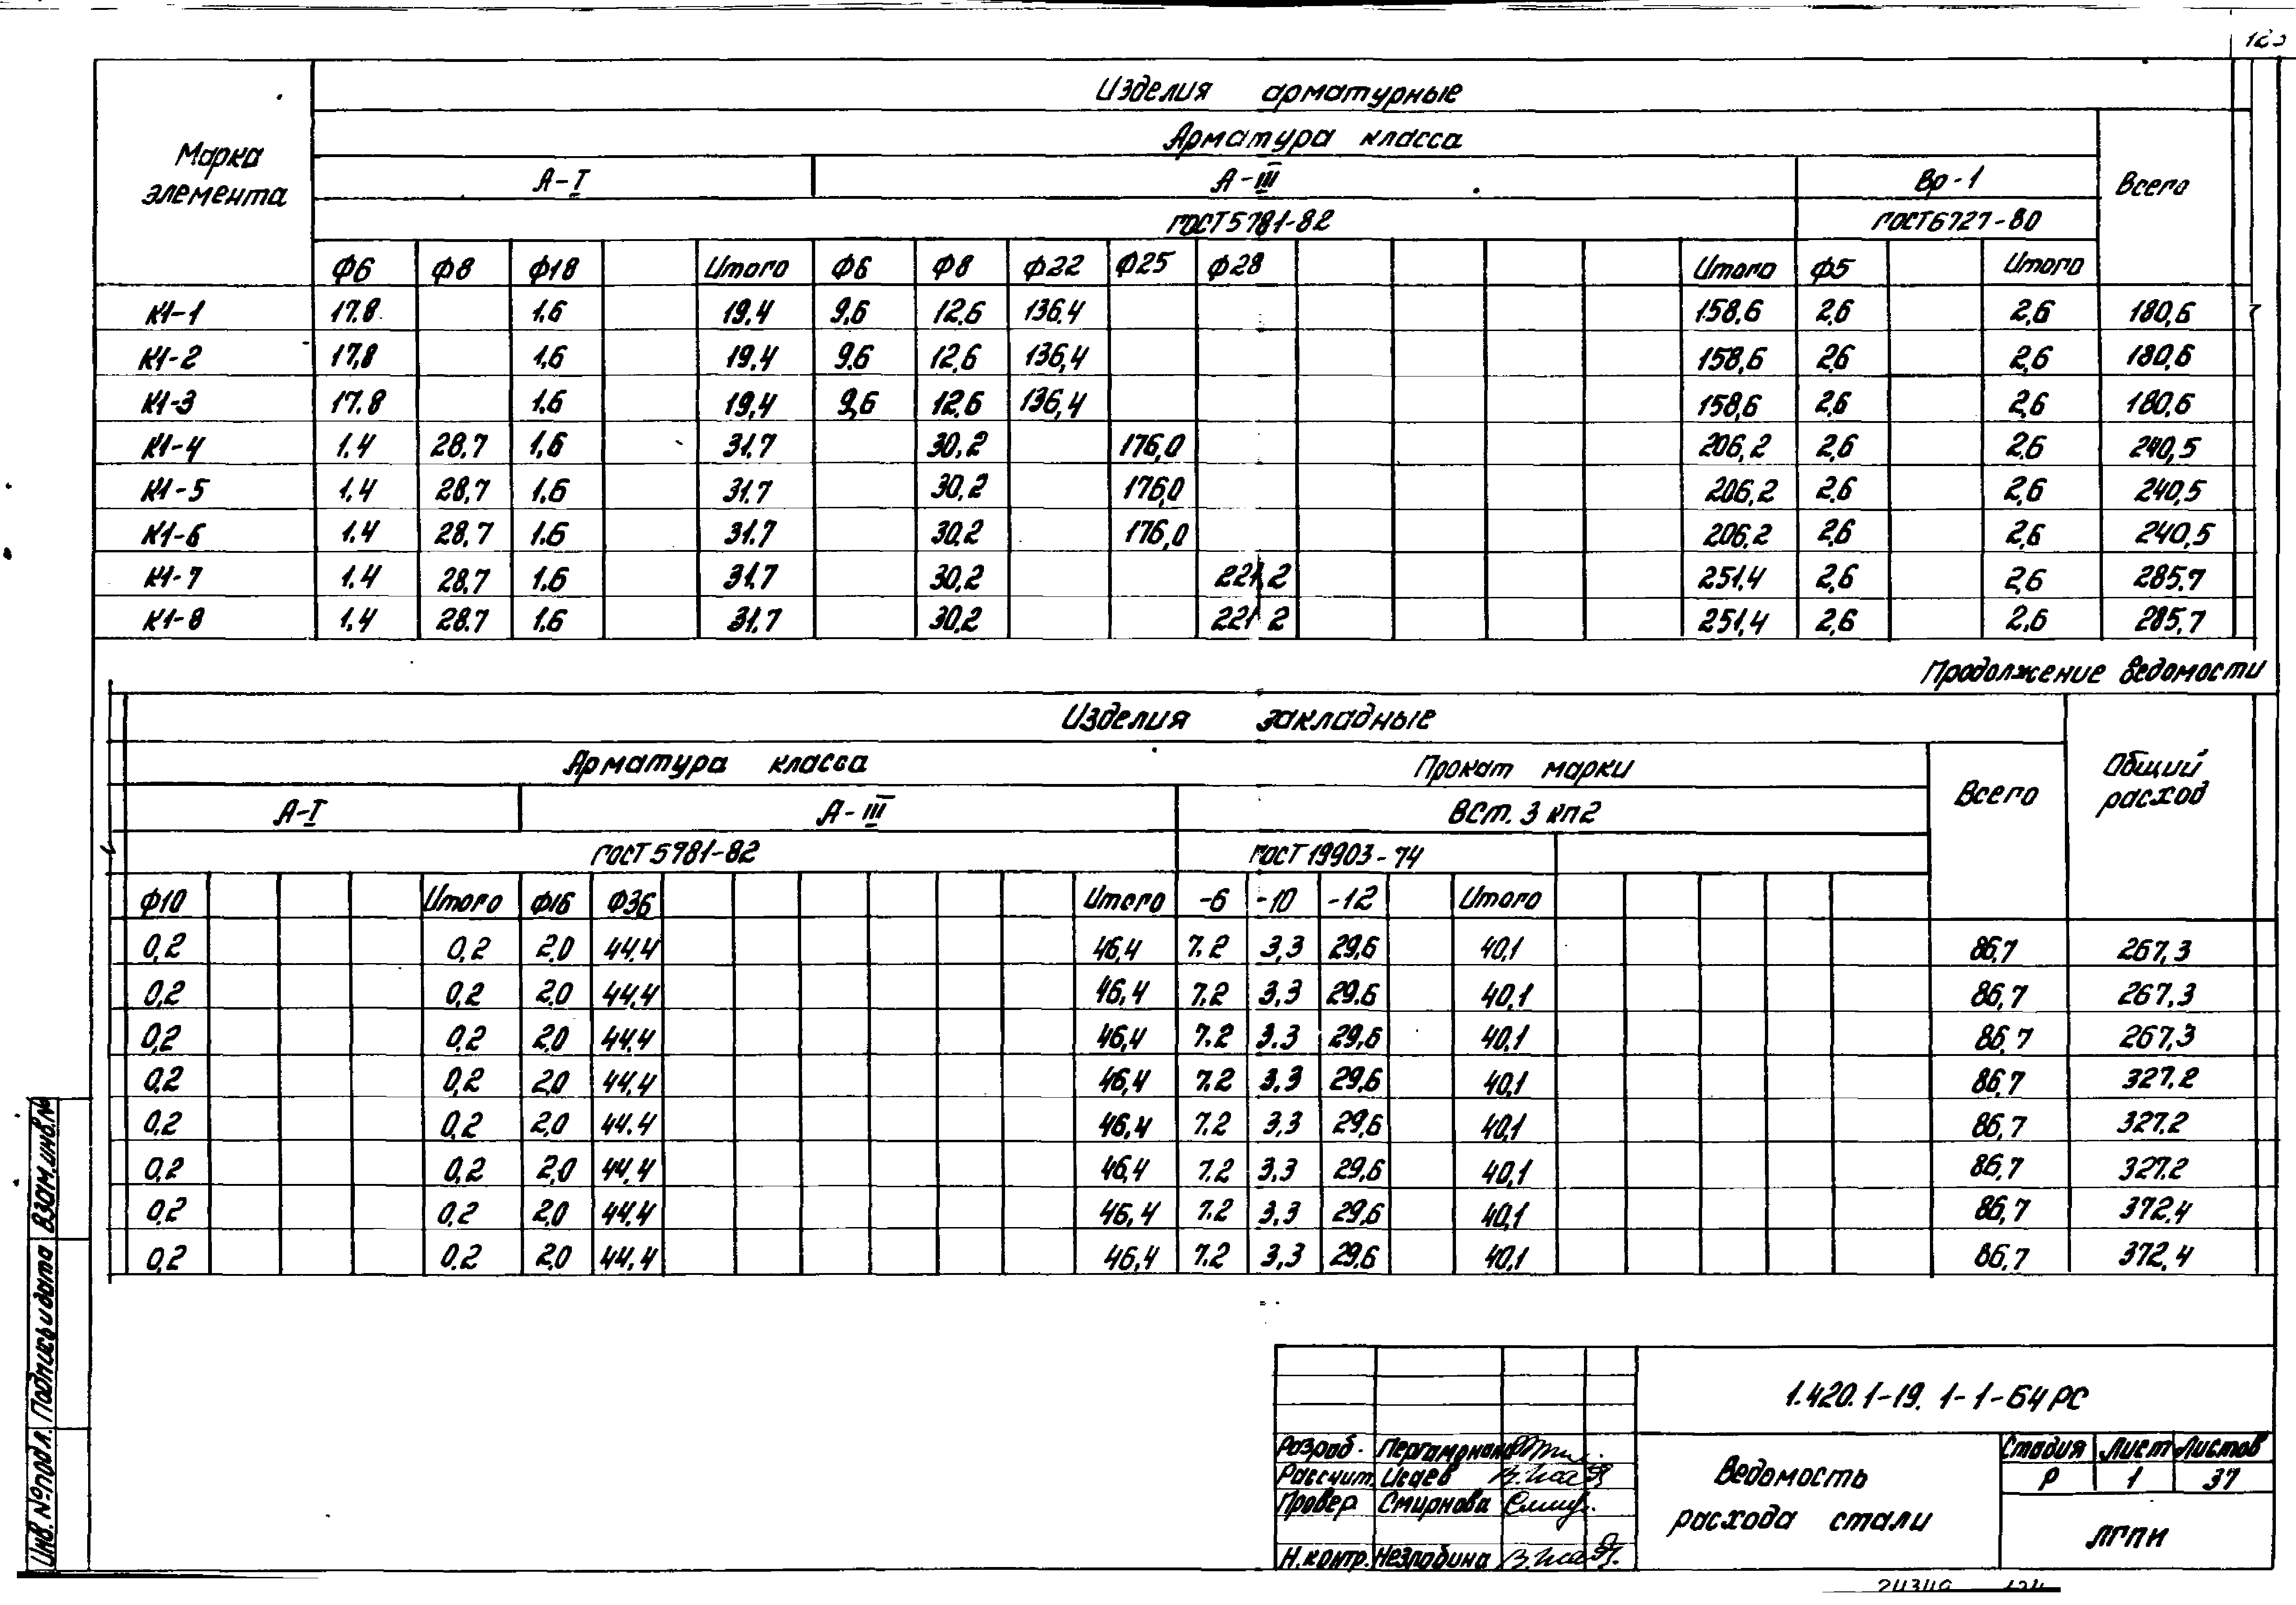 Изделия арматурные
Марка элемента
Арматура класса
Всего
А-I А-III Вр-1
ГОСТ 5781-82 ГОСТ 6727-80
Ф6 Ф8 Ф18 Итого Ф6 Ф8 Ф22 Ф25 Ф28 Итого Ф5 Итого
К1-1 17.8 1.6 19.4 9.6 12.6 136.4 158.6 2.6 2.6 180,6
К1-2 17,8 1,6 19.4 9.6 12.6 136,4 158,6 2,6 2,6 180,6
К1-3 17.8 1.6 19,4 9,6 12.6 136,4 158,6 2,6 2,6 180,6
К1-4 1.4 28.7 1,6 31.7 30.2 176,0 206,2 2,6 2,6 240,5
К1-5 1.4 28,7 1.6 31.7 30,2 176,0 206,2 2,6 2,6 240,5
К1-6 1.4 28.7 1.6 31.7 30,2 176,0 206.2 2,6 2,6 240,5
К1-7 1.4 28.7 1.6 31.7 30,2 221,2 251.4 2,6 2,6 285.7
К1-8 1.4 28.7 1.6 31.7 30,2 221 2 251.4 2,6 2,6 285,7
Продолжение ведомости
Изделия закладные
Арматура класса Прокат марки Всего Общий расход
А-I А-III ВСт. 3 кп2
ГОСТ 5781-82 ГОСТ 19903-74
Ф10 Итого Ф16 Ф36 Итого -6 -10 -12 Итого
0,2 0,2 2.0 44.4 46,4 7.2 3,3 29,6 40,1 86,7 267,3
0,2 0,2 2.0 44,4 46,4 7.2 3.3 29.6 40,1 86,7 267,3
0,2 0,2 2,0 44.4 46,4 7.2 3.3 29,6 40,1 86,7 267,3
0,2 0,2 2,0 44.4 46,4 7.2 3.3 29,6 40,1 86,7 327.2
0,2 0,2 2,0 44.4 46,4 7.2 3,3 29,6 40,1 86,7 327,2
0,2 0,2 2,0 44,4 46,4 7.2 3,3 29,6 40,1 86,7 327.2
0,2 0,2 2,0 44.4 46,4 7.2 3,3 29,6 40,1 86,7 372,4
0,2 0.2 2,0 44,4 46,4 7.2 3,3 29,6 40,1 86,7 372,4
1.420.1-19. 1-1-64РС
Разраб.
Рассчит. Исаев
Провер Смирнова
Н.контр. Незлобина
Ведомость
расхода стали
Стадия Лист Листов
Р 1 37
ЛГПИ
Инв. № подл. Подпись и дата Взам.инв.№